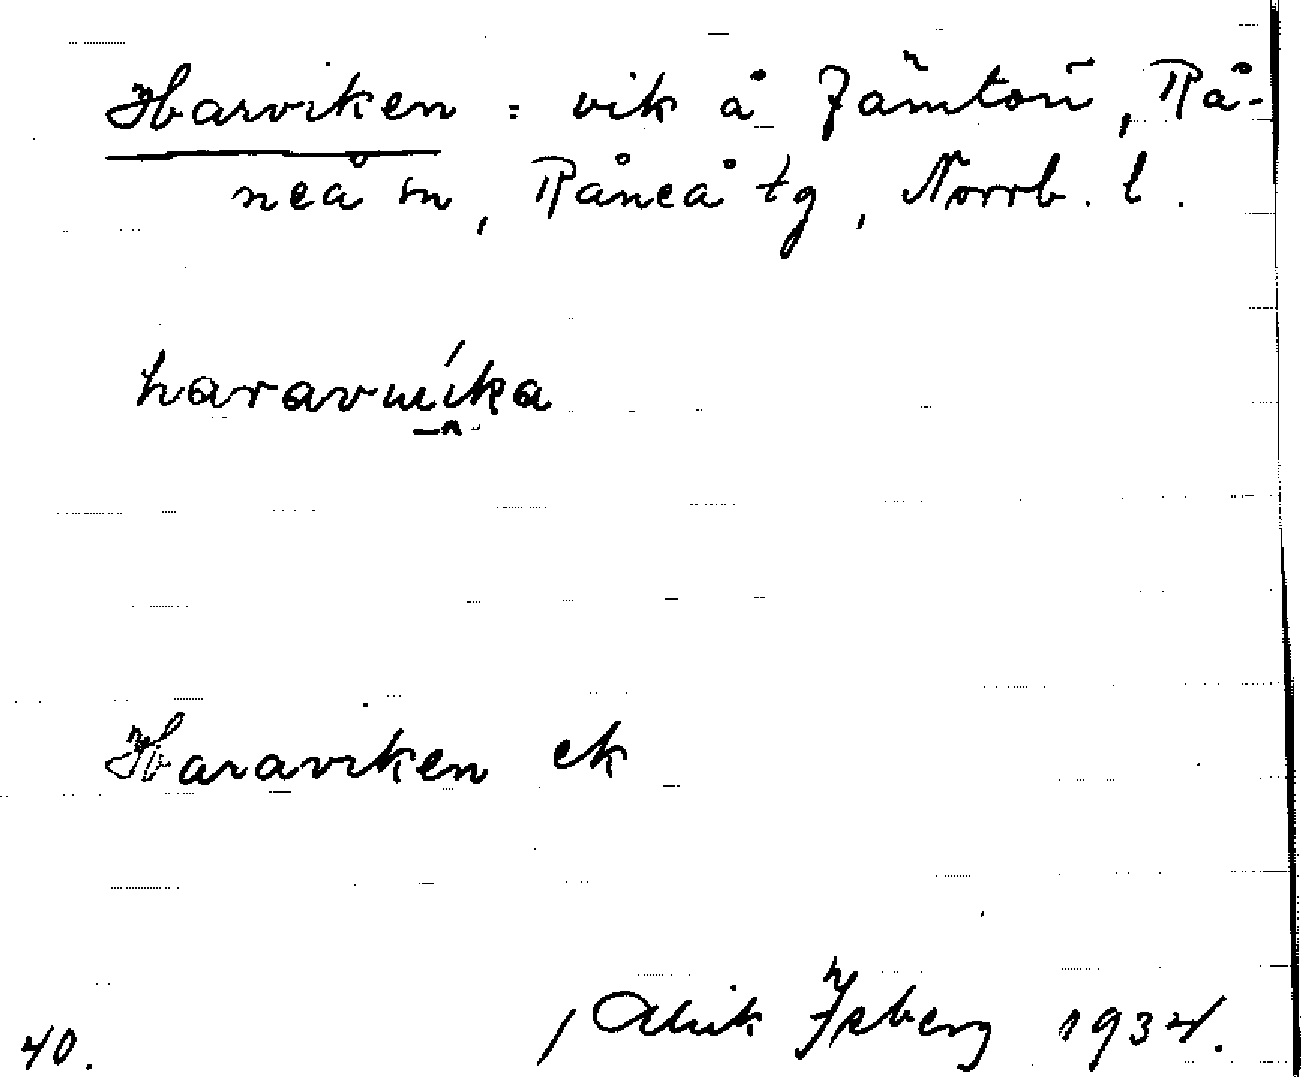 Harviken : vik å Jämtön, Rå-
neå sn, Råneå tg, Norrb. l.
Haraviken ek
40.
Isberg 1934.